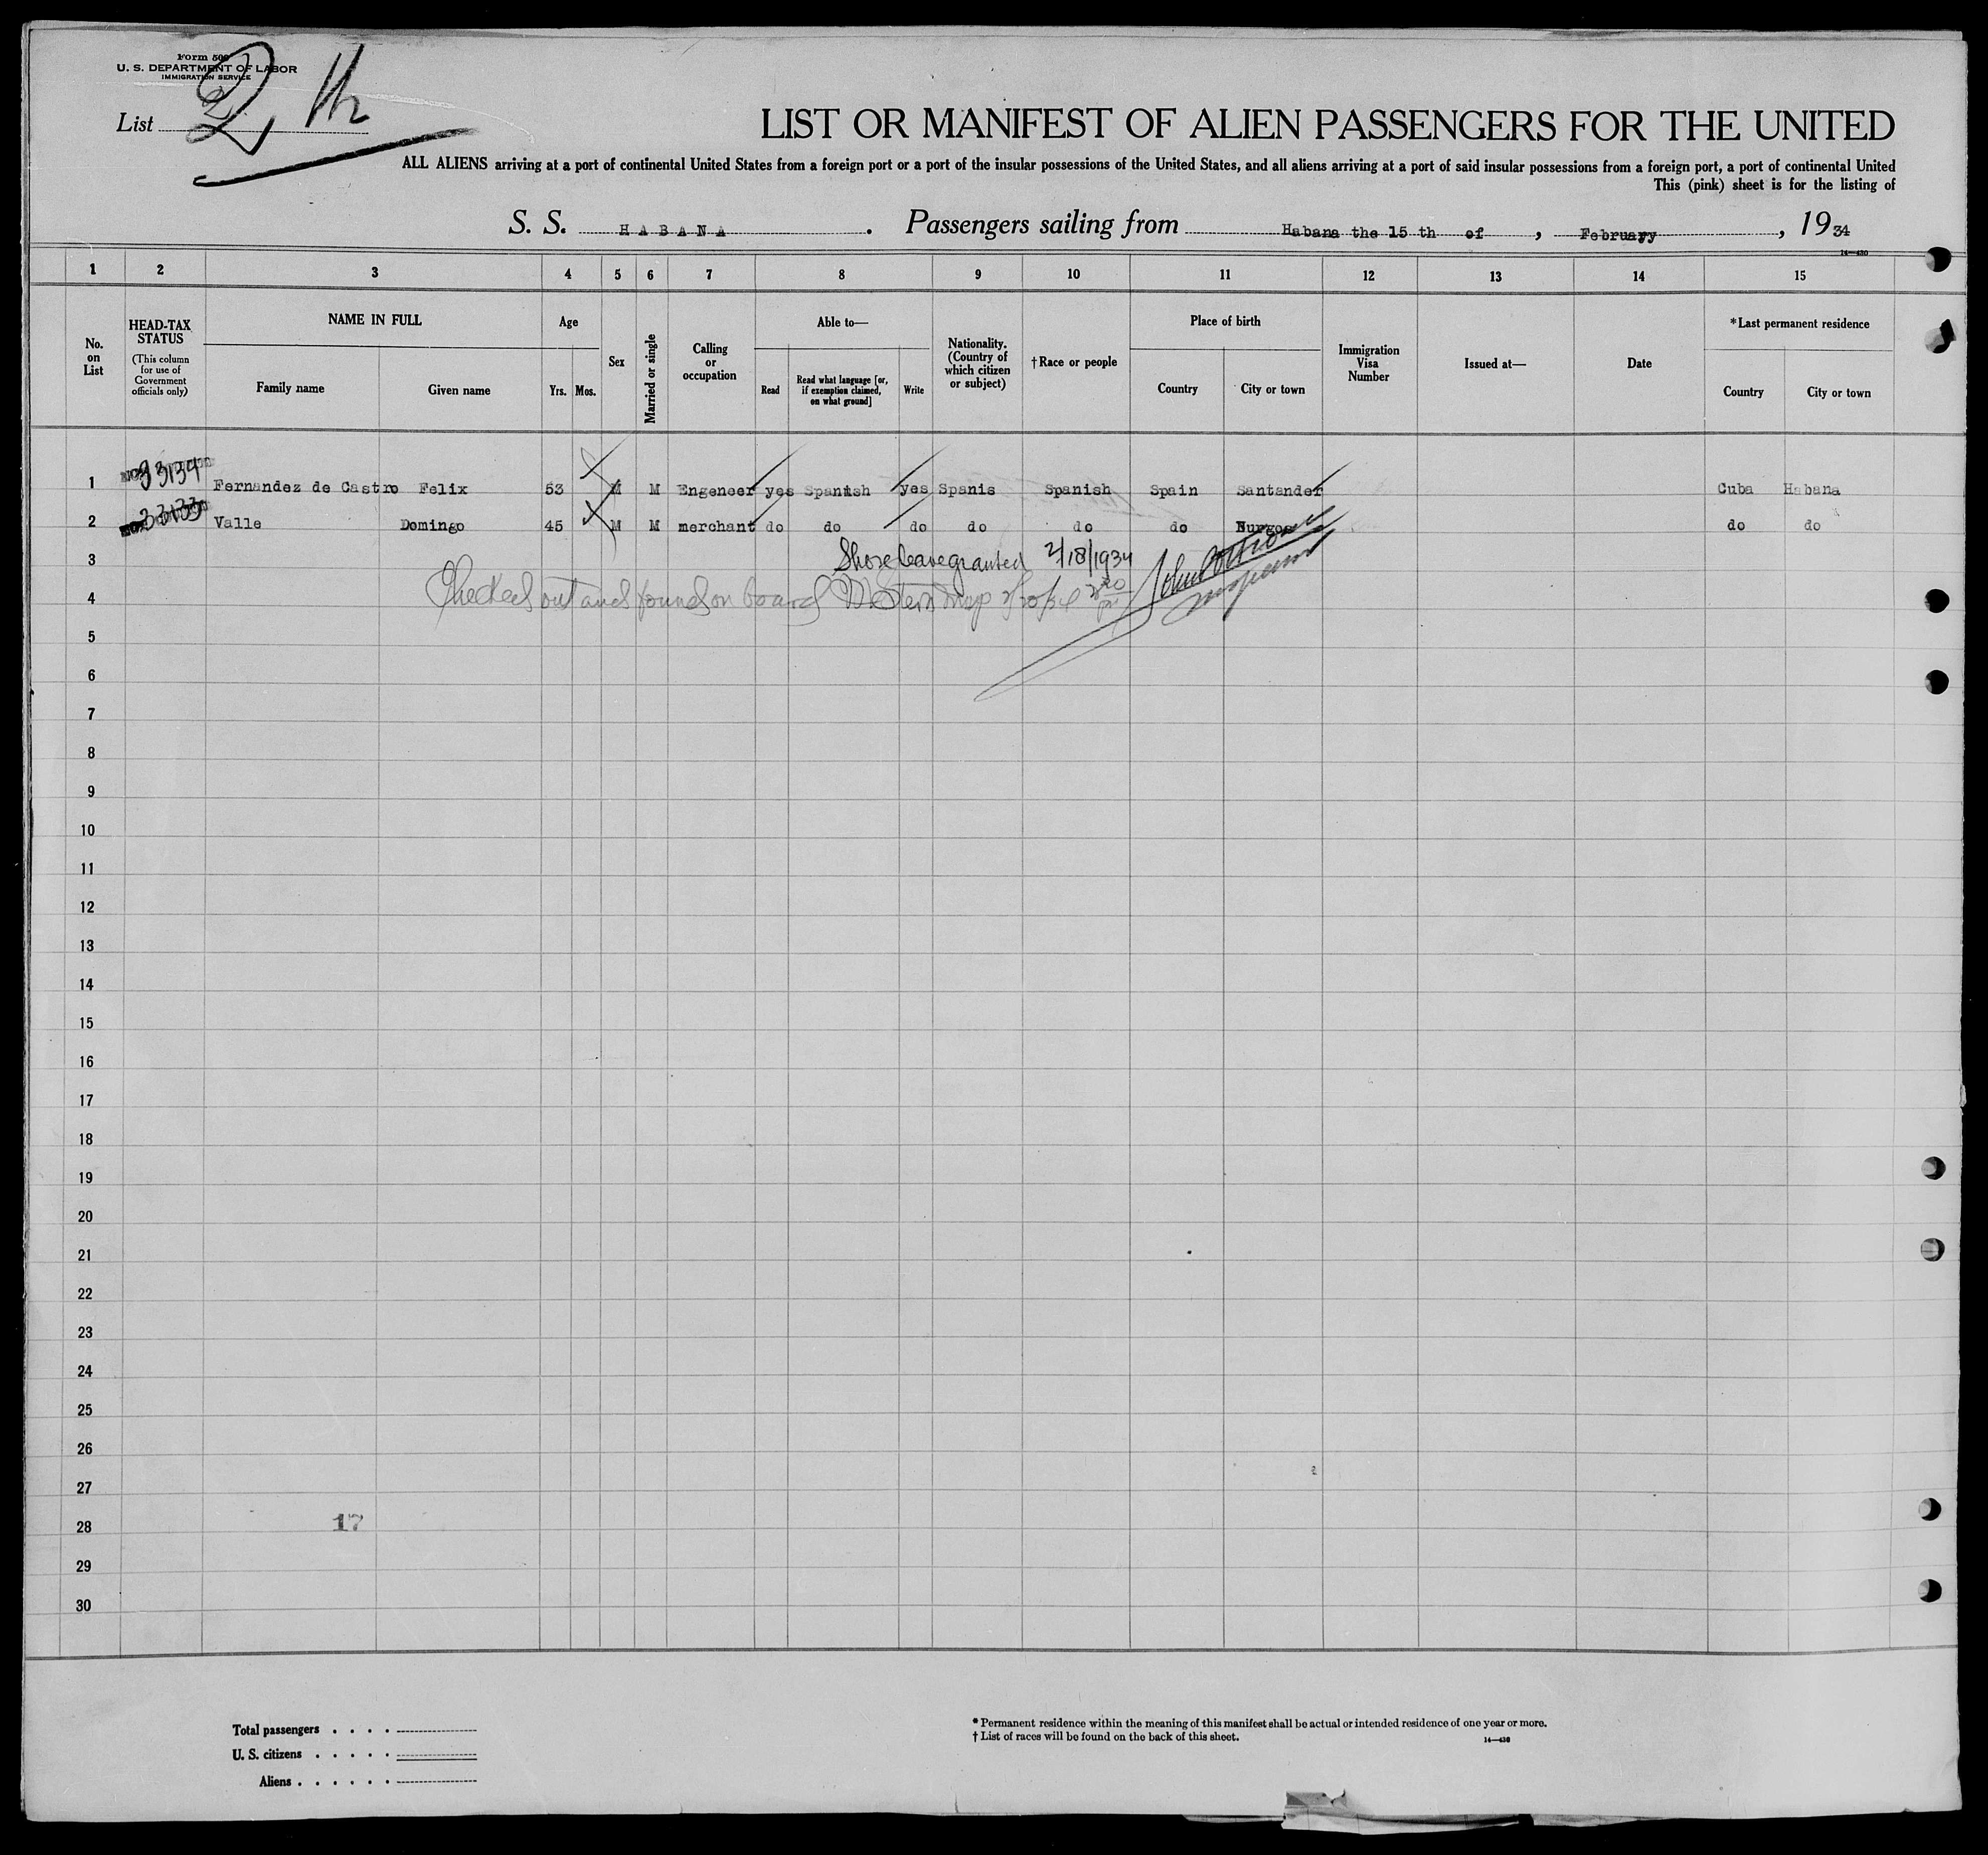 Form 500
U. S. DEPARTMENT OF LABOR
IMMIGRATION SERVICE
List 2
LIST OR MANIFEST OF ALIEN PASSENGERS FOR THE UNITED
ALL ALIENS arriving at a port of continental United States from a foreign port or a port of the insular possessions of the United States, and all aliens arriving at a port of said insular possessions from a foreign port, a port of continental United
This (pink) sheet is for the listing of
S. S. HABANA. Passengers sailing from Habana the 15 th of, February, 1934
14—430
1 2 3 4 5 6 7 8 9 10 11 12 13 14 15
No. on List
HEAD-TAX STATUS
(This column for use of Government officials only)
NAME IN FULL
Family name Given name
Age
Yrs. Mos.
Sex
Married or single
Calling or occupation
Able to—
Read
Read what language [or, if exemption claimed, on what ground]
Write
Nationality. (Country of which citizen or subject)
†Race or people
Place of birth
Country City or town
Immigration Visa Number
Issued at—
Date
*Last permanent residence
Country City or town
1 33134 Fernandez de Castro Felix 53 M M Engeneer yes Spanish yes Spanis Spanish Spain Santander Cuba Habana
2 33133 Valle Domingo 45 M M merchant do do do do do do Burgos do do
3 Shore leave granted 2/18/1934
4 Checked out and found on board 2/20/34
5
6
7
8
9
10
11
12
13
14
15
16
17
18
19
20
21
22
23
24
25
26
27
28 17
29
30
Total passengers . . . .
U. S. citizens . . . . .
Aliens . . . . . .
* Permanent residence within the meaning of this manifest shall be actual or intended residence of one year or more.
† List of races will be found on the back of this sheet.
14—430